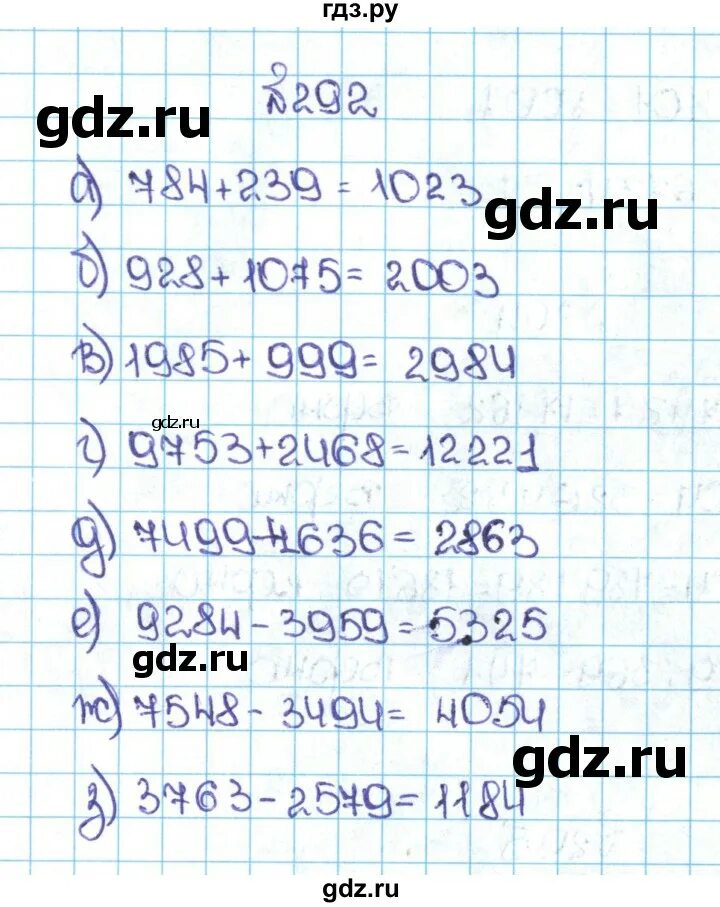 гдз.ру
№292
gdz.ru
а) 784+239 = 1023
gdz.ru
б) 928+1075= 2003
в) 1985+ 999= 2984
gdz.ru
г) 9753+2468=12221
д) 7499-4636= 2863
е) 9284-3959=5325
gdz.ru
ж) 7548- 3494= 4054
gdz.ru
з) 3763-2579=1184
gdz.ru